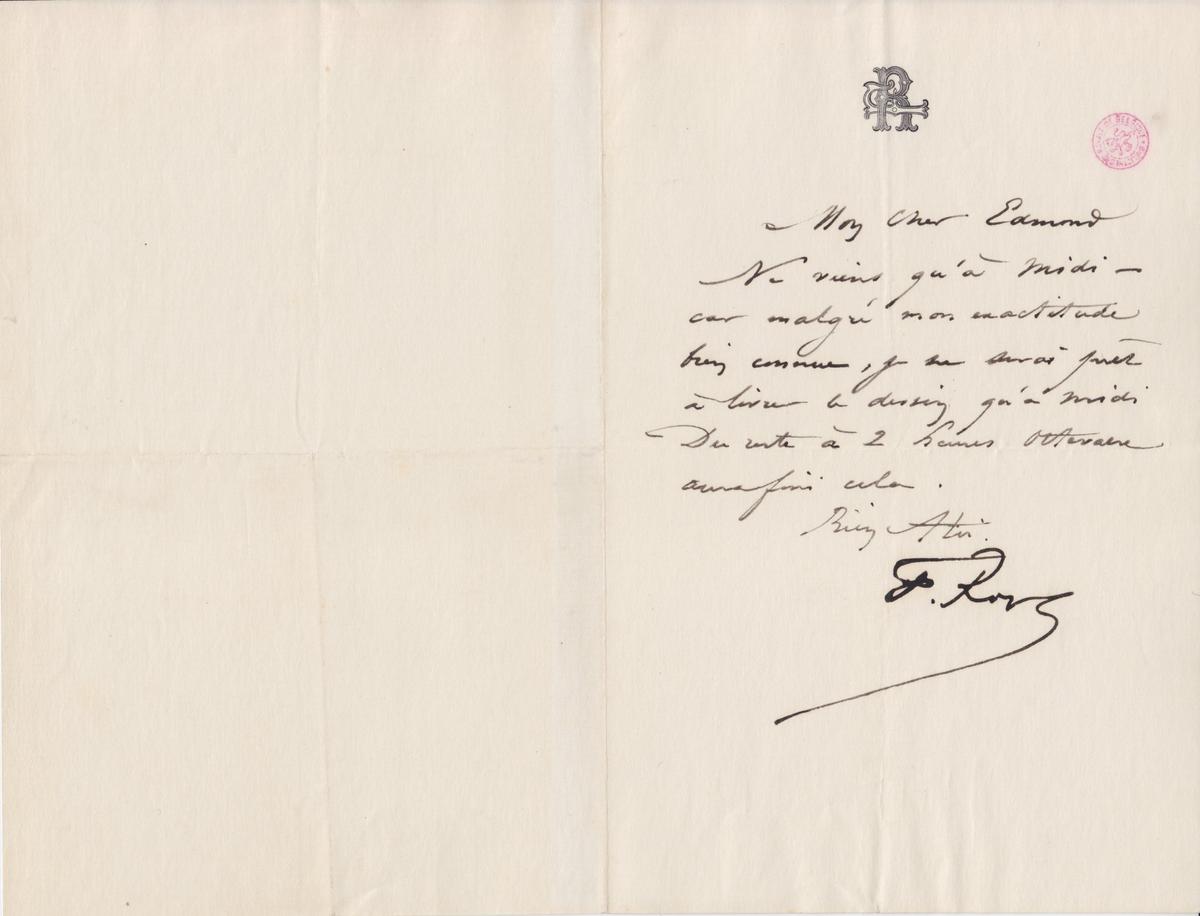 FR
Mon Cher Edmond
Ne viens qu'à midi —
car malgré mon exactitude
bien connue, je ne serai prêt
à livrer le dessin qu'à midi
Du reste à 2 heures
aura fini cela .
Bien A toi.
F. Rops